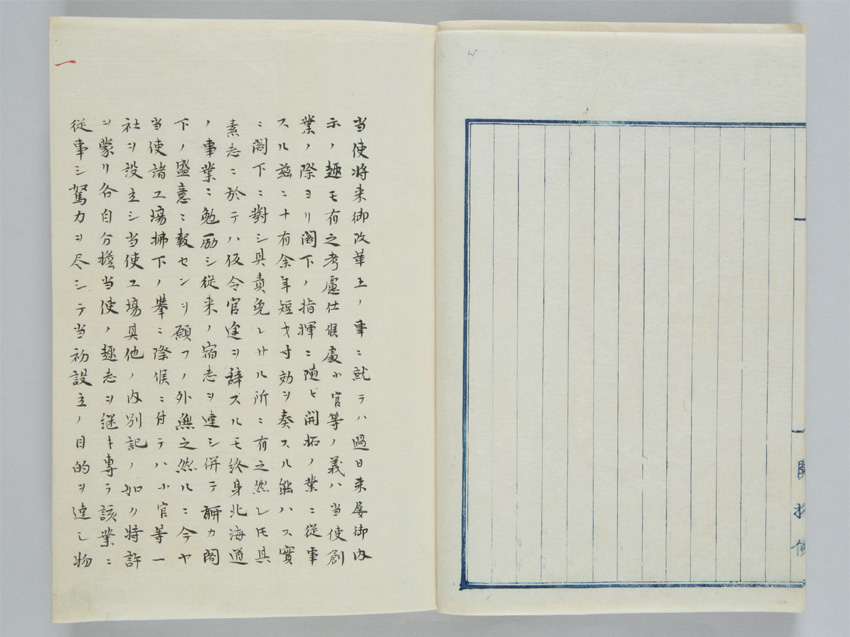 当使将来御改革上ノ事ニ就テハ過日来屡御内
示ノ趣モ有之考慮仕候處小官等ノ義ハ当使創
業ノ際ヨリ閣下ノ指揮ニ随ヒ開拓ノ業ニ従事
スル茲ニ十有余年短才寸効ヲ奏スル能ハス實
ニ閣下ニ對シ其責免レサル所ニ有之然レ𪜈其
素志ニ於テハ仮令官途ヲ辞ズルモ終身北海道
ノ事業ニ勉励シ従来ノ宿志ヲ達シ併テ酬カ閣
下ノ盛意ニ報センヿヲ願フノ外無之然ルニ今ヤ
当使諸工場拂下ノ挙ニ際候ニ付テハ小官等一
社ヲ設立シ当使工場其他ノ内別記ノ如ク特許
ヲ蒙リ各自分擔当使ノ趣志ヲ継キ専ラ該業ニ
従事シ駑力ヲ尽シテ当初設立ノ目的ヲ達シ物
一
開拓使